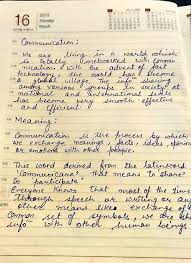 16
2015
Monday
March
Communication:
We are living in a world which
is totally networked with commun
ication. With the advent of fast
technology, the world has become
a global village. The info sharing
among various groups in society at
national and international levels
has become very smooth effective
and efficient.
Meaning:
Communication is the process by which
we exchange meanings, facts, ideas, opinions
or emotions with other people.
This word derived from the latin word
'Communicare' that means to share
to participate.
Everyone knows that most of the time
through speech or writing or any
other means like exchange of
Common set of symbols, we are
info with other human beings